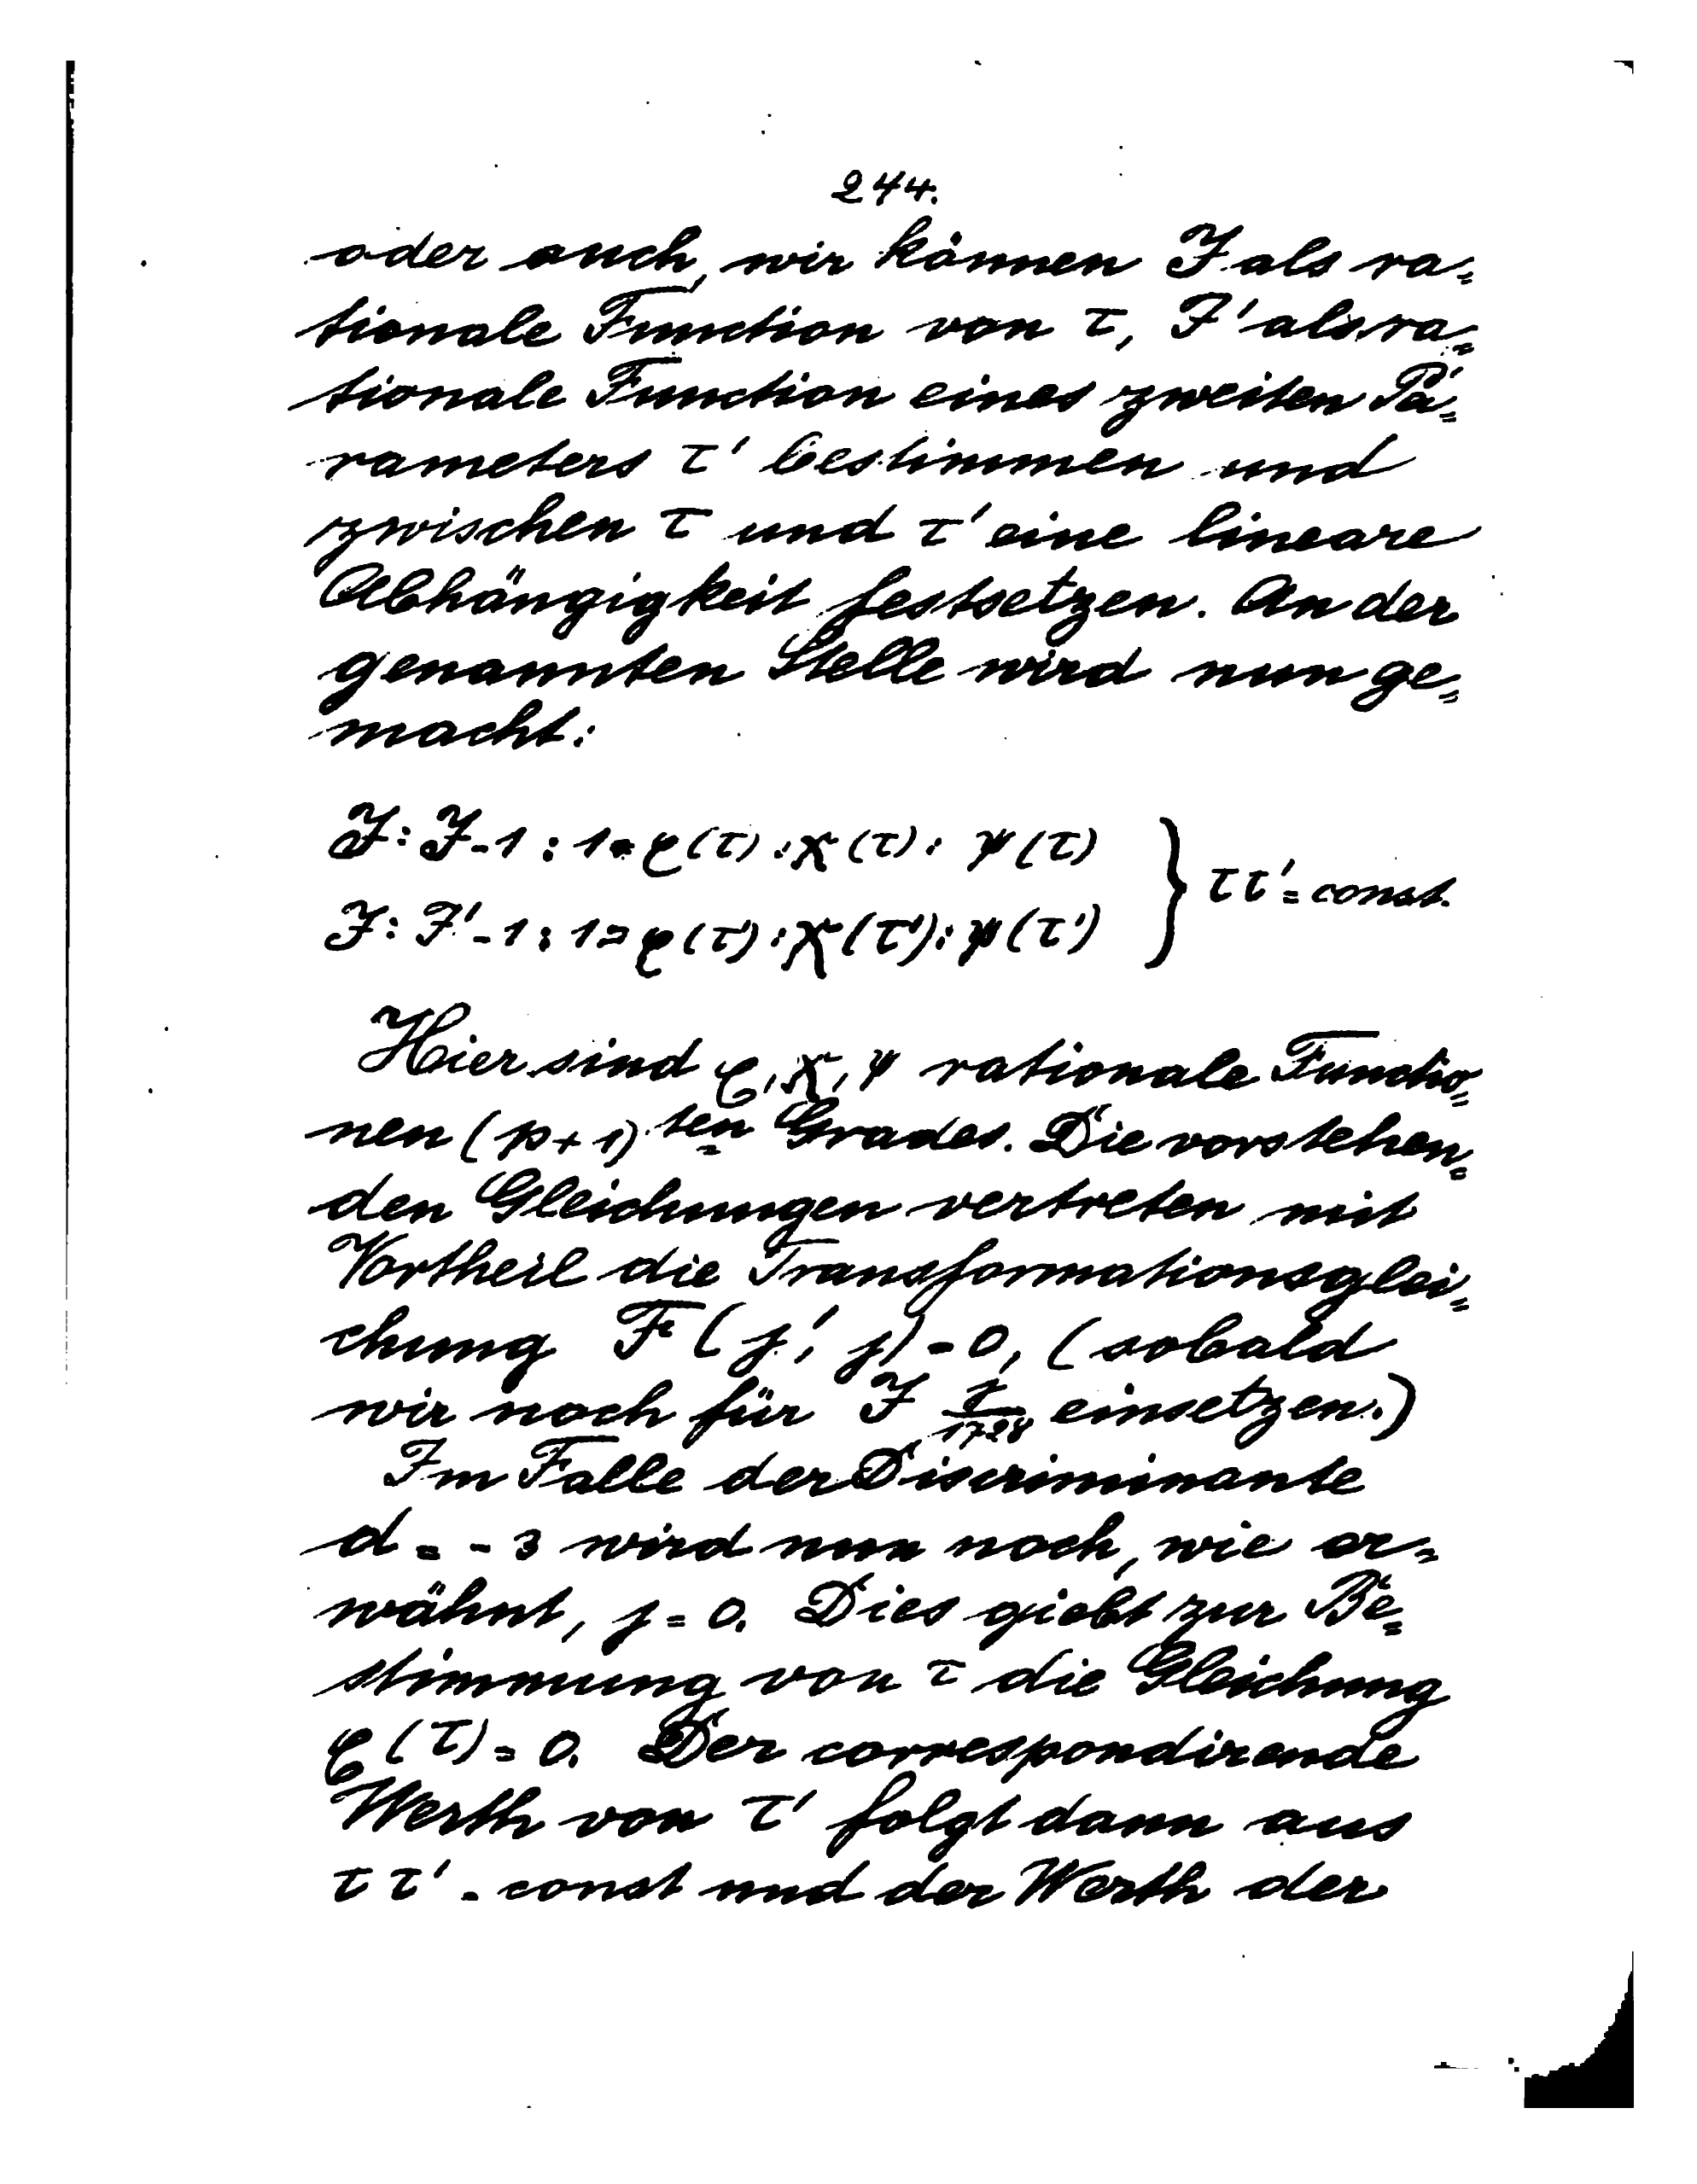 244.
oder auch, wir können J als ra=
tionale Function von τ, J' als ra=
tionale Function eines zweiten Pa=
rameters τ' bestimmen und
zwischen τ und τ' eine lineare
Abhängigkeit festsetzen. An der
genannten Stelle wird nun ge=
macht:
J : J-1 : 1 = φ(τ) : χ(τ) : ψ(τ)
J : J'-1 : 1 = φ(τ') : χ(τ') : ψ(τ') } ττ' = const.
Hier sind φ, χ, ψ rationale Functio=
nen (p+1)ten Grades. Die vorstehen=
den Gleichungen vertreten mit
Vortheil die Transformationsglei=
chung F(j', j) = 0, (sobald
wir noch für J j/1728 einsetzen.)
Im Falle der Discriminante
d = -3 wird nun noch, wie er=
wähnt, j = 0. Dies giebt zur Be=
stimmung von τ die Gleichung
φ(τ) = 0. Der correspondirende
Werth von τ' folgt dann aus
ττ' = const und der Werth der